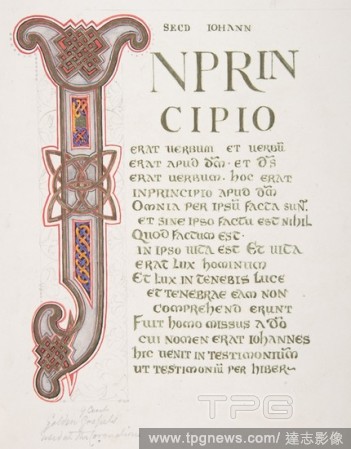 SECD IOHANN
INPRIN
CIPIO
ERAT UERBUM ET UERBŪ
ERAT APUD DM̄ · ET D̄S
ERAT UERBUM. HOC ERAT
INPRINCIPIO APUD DM̄
OMNIA PER IPSŪ FACTA SUNT.
ET SINE IPSO FACTU EST NIHIL
QUOD FACTUM EST ·
IN IPSO UITA EST ET UITA
ERAT LUX HOMINUM
ET LUX IN TENEBIS LUCE
ET TENEBRAE EAM NON
COMPREHEND ERUNT
FUIT HOMO MISSUS A DO
CUI NOMEN ERAT IOHANNES
HIC UENIT IN TESTIMONIUM
UT TESTIMONIŪ PER HIBER
TPG
www.tpgnews.com / 達志影像